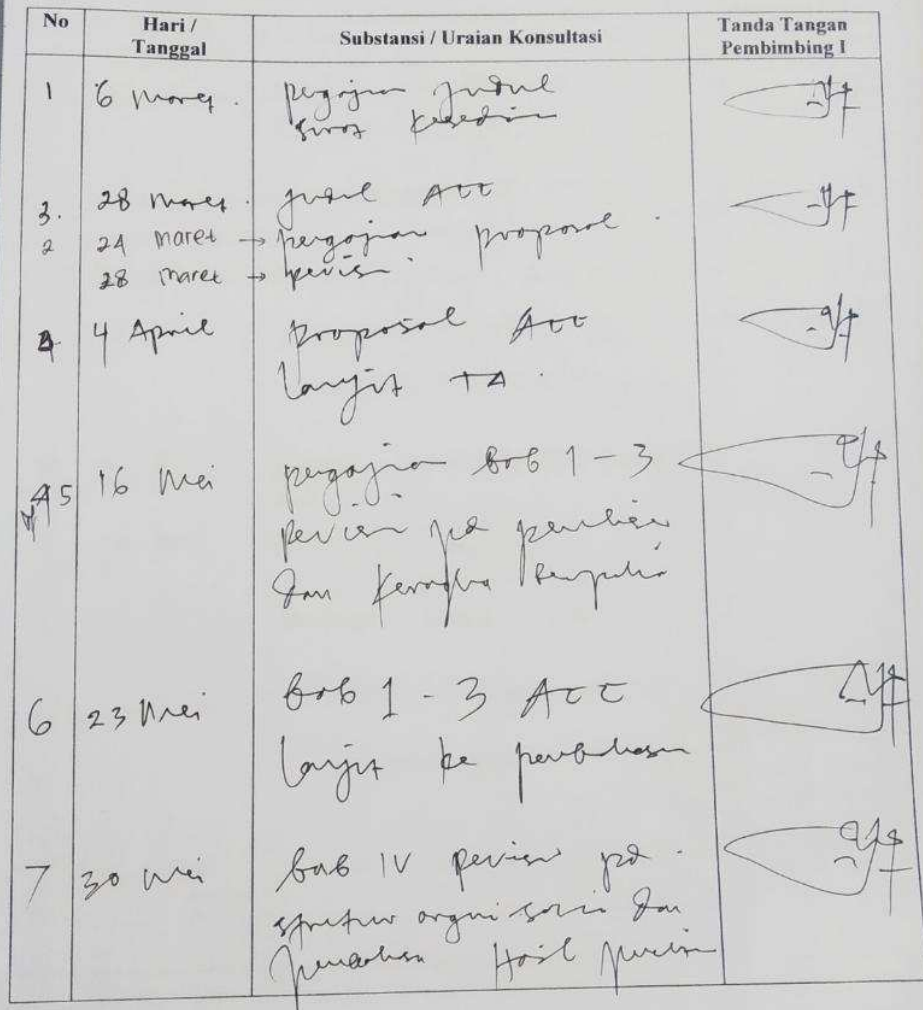 No Hari / Tanggal Substansi / Uraian Konsultasi Tanda Tangan Pembimbing I
1 6 Maret. pengajuan judul
surat kesediaan
3. 28 Maret. judul ACC
2 24 Maret → pengajuan proposal.
28 Maret → revisi.
4 4 April proposal ACC
lanjut TA.
5 16 Mei pengajuan bab 1 - 3
revisi pd penulisan
dan kerangka
6 23 Mei bab 1 - 3 ACC
lanjut ke pembahasan
7 30 Mei bab IV revisi pd.
struktur organisasi dan
Hasil